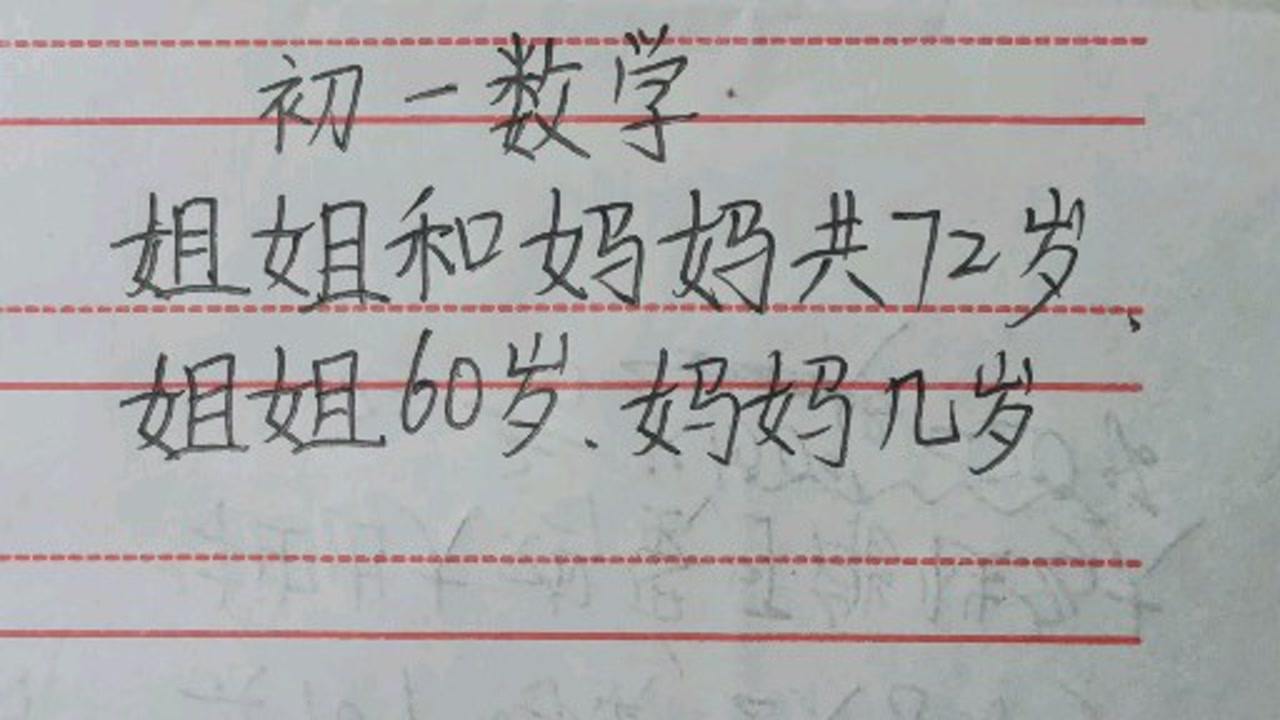 初一数学
姐姐和妈妈共72岁、
姐姐60岁、妈妈几岁